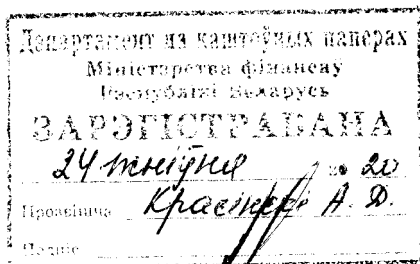 Дэпартамент па каштоўных паперах
Міністэрства фінансаў
Рэспублікі Беларусь
ЗАРЭГІСТРАВАНА
24 жніўня 20
Прозвішча А. Д.
Подпіс